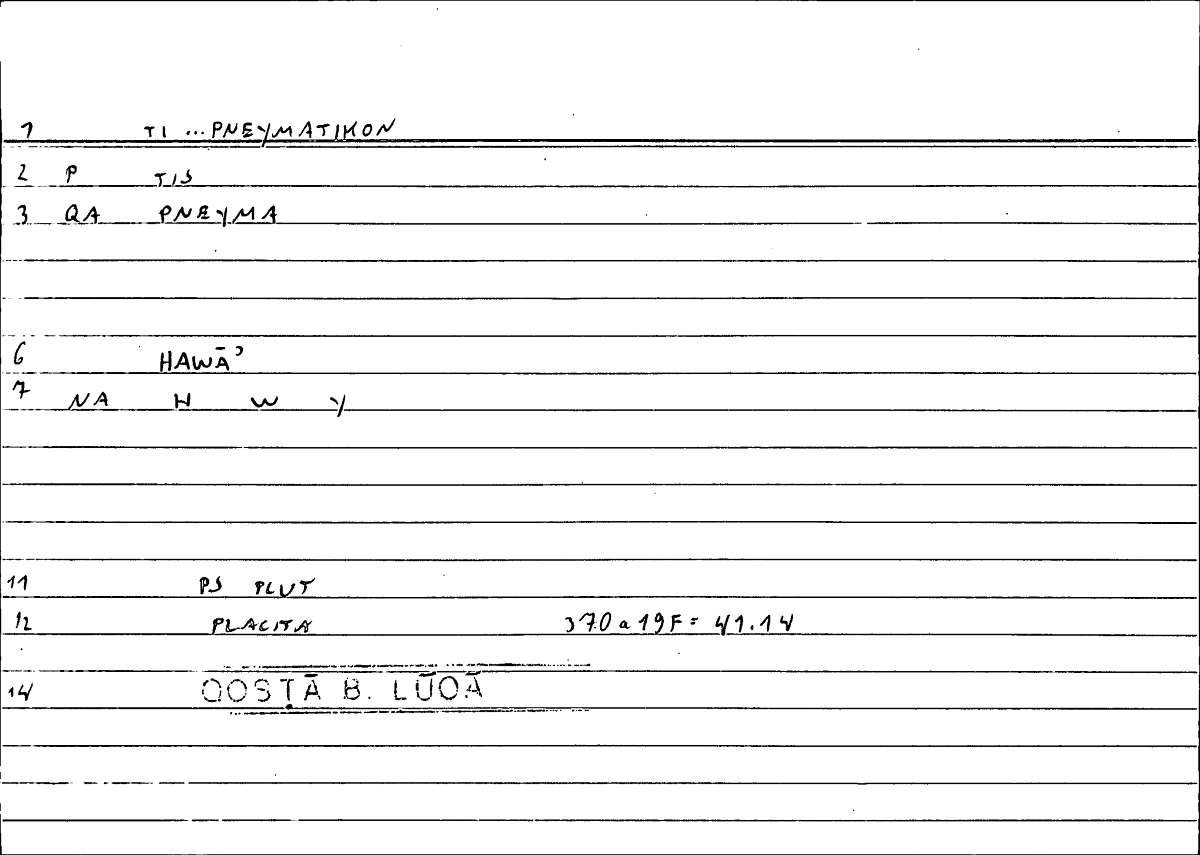 1 TI ... PNEYMATIKON
2 P TIS
3 QA PNEYMA
6 HAWĀʾ
7 NA H W Y
11 PS PLUT
12 PLACITA 370a19F = 41.14
14 QOSṬĀ B. LŪQĀ